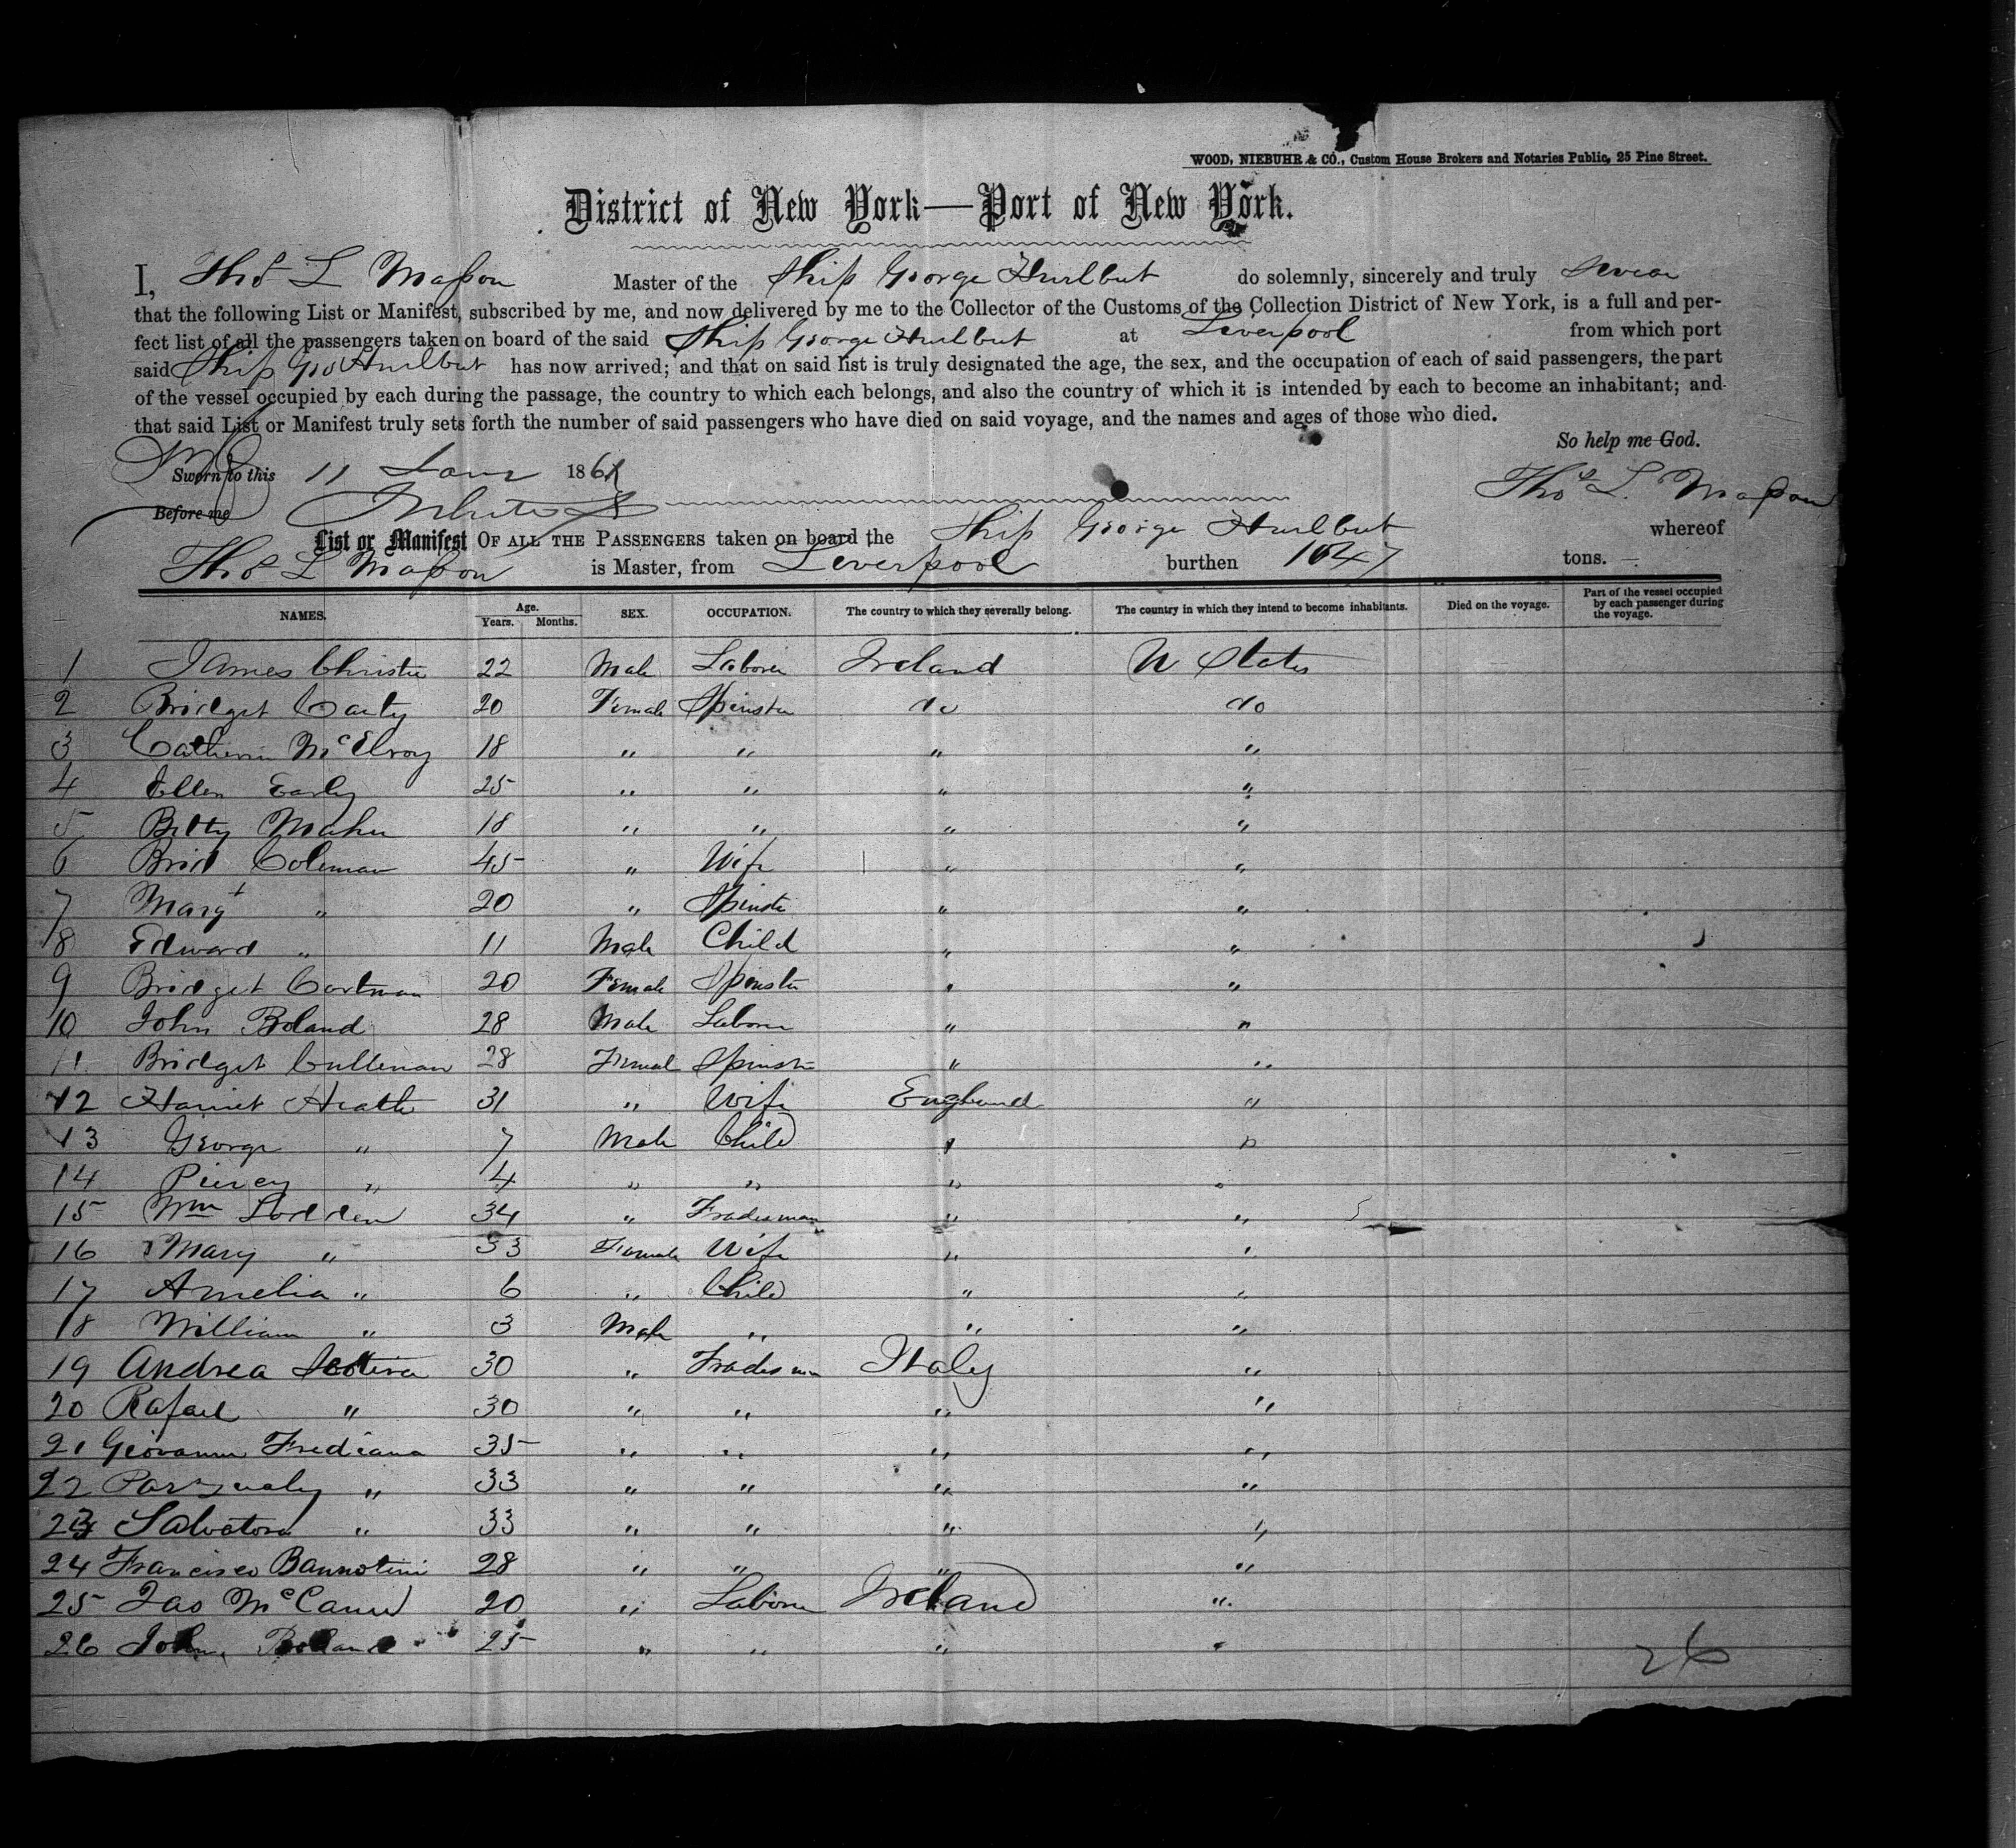 WOOD, NIEBUHR & CO., Custom House Brokers and Notaries Public, 25 Pine Street.
District of New York—Port of New York.
I, Thos L Mason Master of the Ship George Hurlbut do solemnly, sincerely and truly swear
that the following List or Manifest, subscribed by me, and now delivered by me to the Collector of the Customs of the Collection District of New York, is a full and per-
fect list of all the passengers taken on board of the said Ship George Hurlbut at Liverpool from which port
said Ship Geo Hurlbut has now arrived; and that on said list is truly designated the age, the sex, and the occupation of each of said passengers, the part
of the vessel occupied by each during the passage, the country to which each belongs, and also the country of which it is intended by each to become an inhabitant; and
that said List or Manifest truly sets forth the number of said passengers who have died on said voyage, and the names and ages of those who died.
So help me God.
Sworn to this 11 Jany 186 Thos L. Mason
Before me
List or Manifest OF ALL THE PASSENGERS taken on board the Ship George Hurlbut whereof
Thos L Mason is Master, from Liverpool burthen 1047 tons.
NAMES. Age. Years. Months. SEX. OCCUPATION. The country to which they severally belong. The country in which they intend to become inhabitants. Died on the voyage. Part of the vessel occupied by each passenger during the voyage.
1 James Christie 22 Male Laborer Ireland U States
2 Bridget Carty 20 Female Spinster do do
3 Catherin McElroy 18 " " " "
4 Ellen Early 25 " " " "
5 Betty Maher 18 " " " "
6 Brid Coleman 45 " Wife " "
7 Margt " 20 " Spinster " "
8 Edward " 11 Male Child " "
9 Bridget Cortman 20 Female Spinster " "
10 John Boland 28 Male Laborer " "
11 Bridget Cullenan 28 Female Spinster " "
12 Harriet Heath 31 " Wife England "
13 George " 7 Male Child " "
14 Piercy " 4 " " " "
15 Wm Lodden 34 " Tradesman " "
16 Mary " 33 Female Wife " "
17 Amelia " 6 " Child " "
18 William " 3 Male " " "
19 Andrea 30 " Tradesman Italy "
20 Rafael " 30 " " " "
21 Giovanni Frediana 35 " " " "
22 Parsqualy " 33 " " " "
23 Salvatore " 33 " " " "
24 Francisco Bannotini 28 " " " "
25 Jas McCann 20 " Laborer Ireland "
26 John Boland 25 " " " "
26